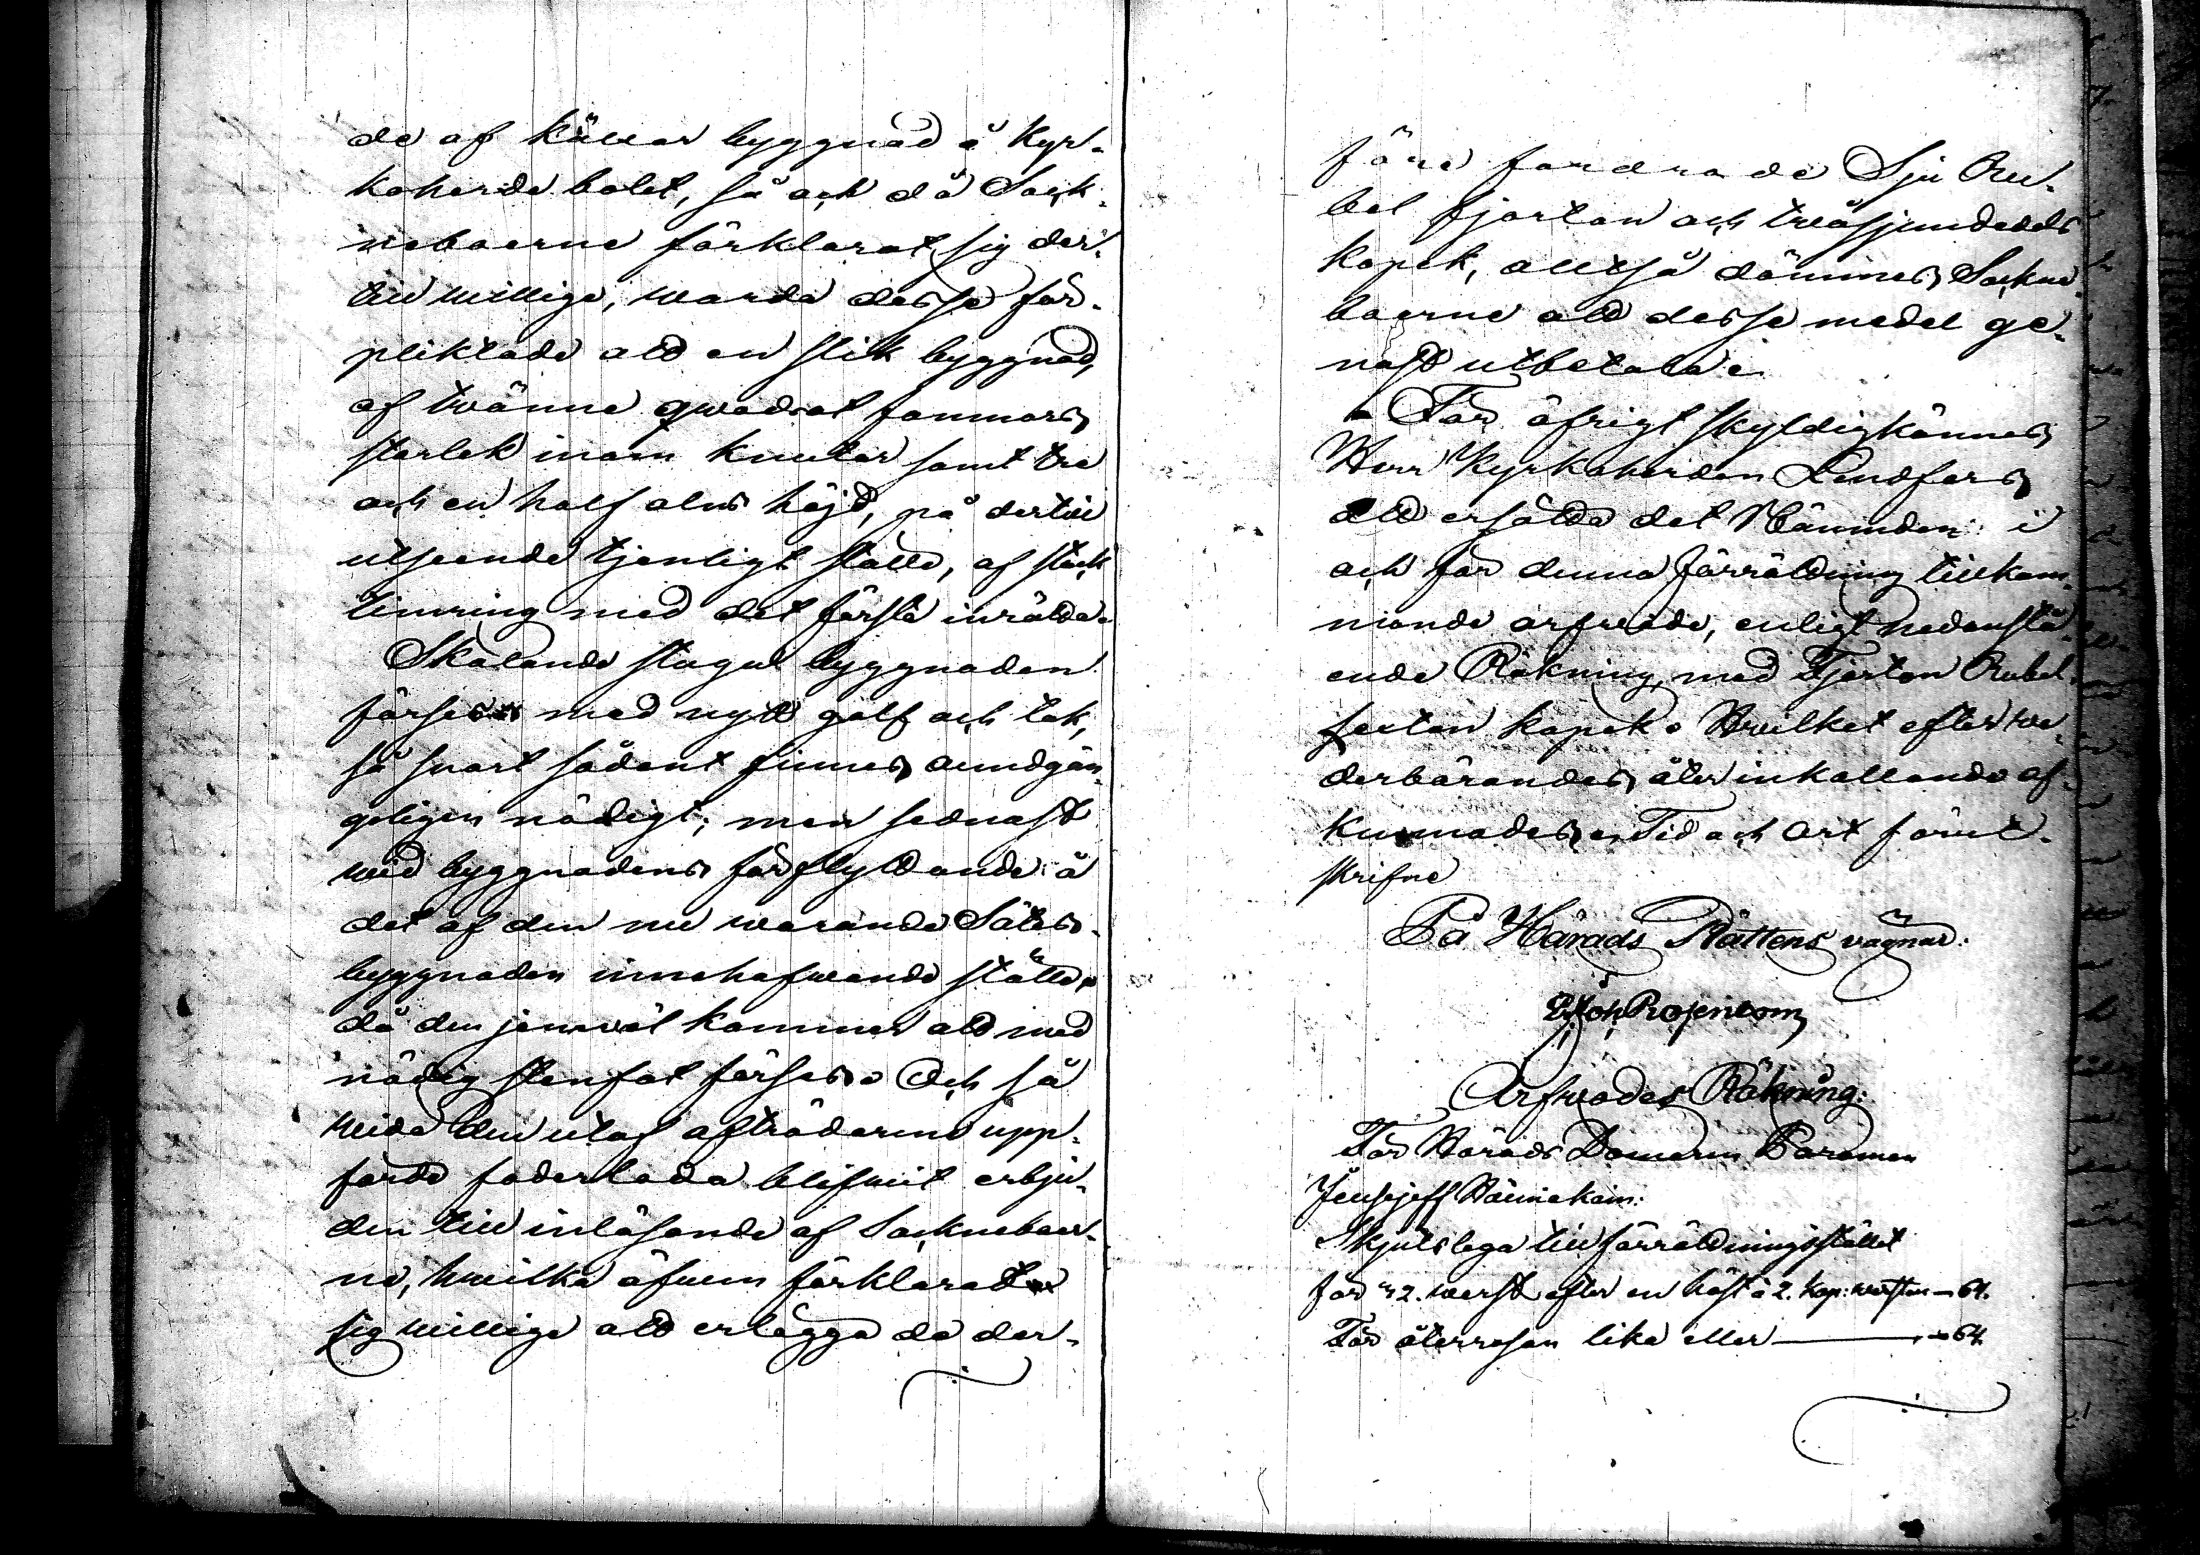 de af källar byggnad å Kyr-
koherde bolet, så ock då Sock-
neboerne förklarat sig der-
till willige, warda desse för-
pliktade att en slik byggnad,
af twänne qwadrat famnars
storlek inom knutar samt tre
och en half alns höjd, på dertill
utseende tjenligt ställe, af stock
timring med det första inrätta.
Skolande stugu byggnaden
förses med nytt golf och tak,
så snart sådant finnes oundgän-
geligen nödigt; men sednast
wid byggnadens förflyttande å
det af den nu warande Sätes-
byggnaden innehafwande ställe,
då den jemwäl kommer att med
nödig stenfot förses. Och så
wida den utaf afträdarene upp-
förde foderlada blifwit erbju-
den till inlösande af Sockneboer-
ne, hwilka äfwen förklarat
sig willige att erlägga de der-
före fordrade Sju Ru-
bel fjorton och twåsjundedels
kopek, alltså dömmes Sockne-
boerne att desse medel ge-
nast utbetala.
För öfrigt skyldigkännes
Herr Kyrkoherden Lendfors
att ersätta det Nämnden i
och för denna förrättning tillkom-
mande arfwode, enligt nedanstå-
ende Räkning, med Fjorton Rubel
sexton kopek. Hwilket efter we-
derbörandes återinkallande af-
kunnades. Tid och Ort förut-
skrifne
På Härads Rättens vägnar:
Arfwodes Räkning:
För Härads Domaren Paramon
Jeusejeff Hännikäin:
Skjutslega till förrättningsstället
för 32. werst efter en häst à 2. kop: wersten — 64.
För återresan lika eller — 64